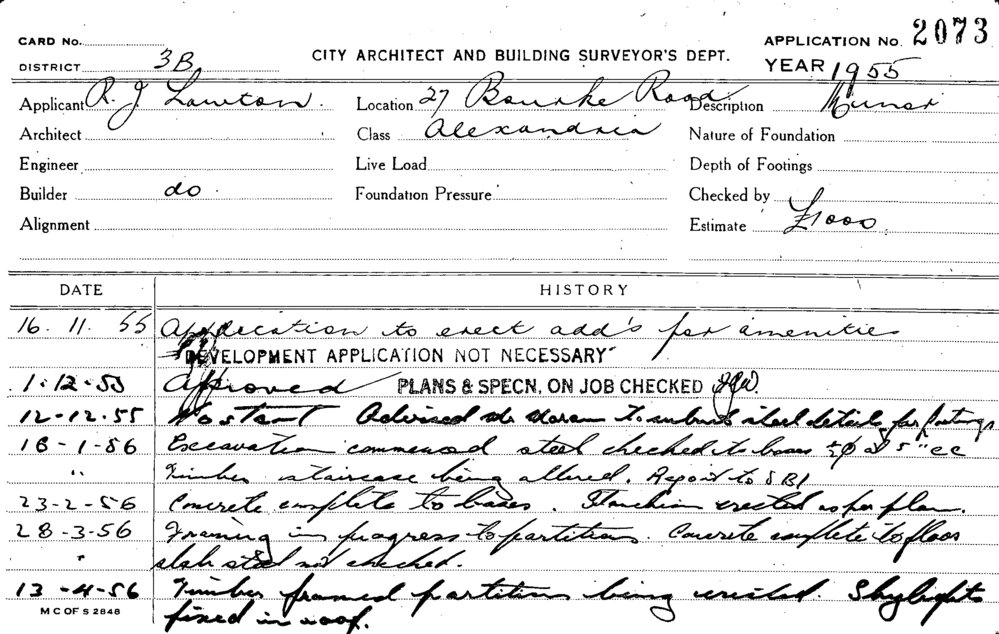 CARD No.
DISTRICT 3B
CITY ARCHITECT AND BUILDING SURVEYOR'S DEPT.
APPLICATION No. 2073
YEAR 1955
Applicant R. J. Lawton. Location 27 Bourke Road Description Minor
Architect Class Alexandria Nature of Foundation
Engineer Live Load Depth of Footings
Builder do. Foundation Pressure Checked by
Alignment Estimate £1000
DATE HISTORY
16. 11. 55 Application to erect add's for amenities
DEVELOPMENT APPLICATION NOT NECESSARY
1.12.55 Approved PLANS & SPECN. ON JOB CHECKED
12-12-55 No start Advised Mr to submit steel details for footings
18-1-56 Excavation commenced steel checked to bases 5" cc
" Timber staircase being altered. Report to SBI
23-2-56 Concrete complete to bases. Stanchion erected as per plan.
28-3-56 Framing in progress to partitions. Concrete complete to floor
" slab steel not checked.
13-4-56 Timber framed partitions being erected. Skylights
fixed in roof.
M C OF S 2848